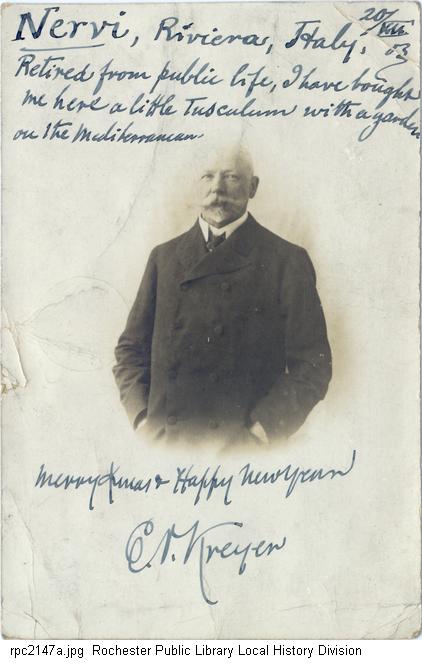 Nervi, Riviera, Italy. 20/XII 03
Retired from public life, I have bought
me here a little Tusculum with a garden
on the Mediterranean.
Merry Xmas & Happy New Year
rpc2147a.jpg Rochester Public Library Local History Division